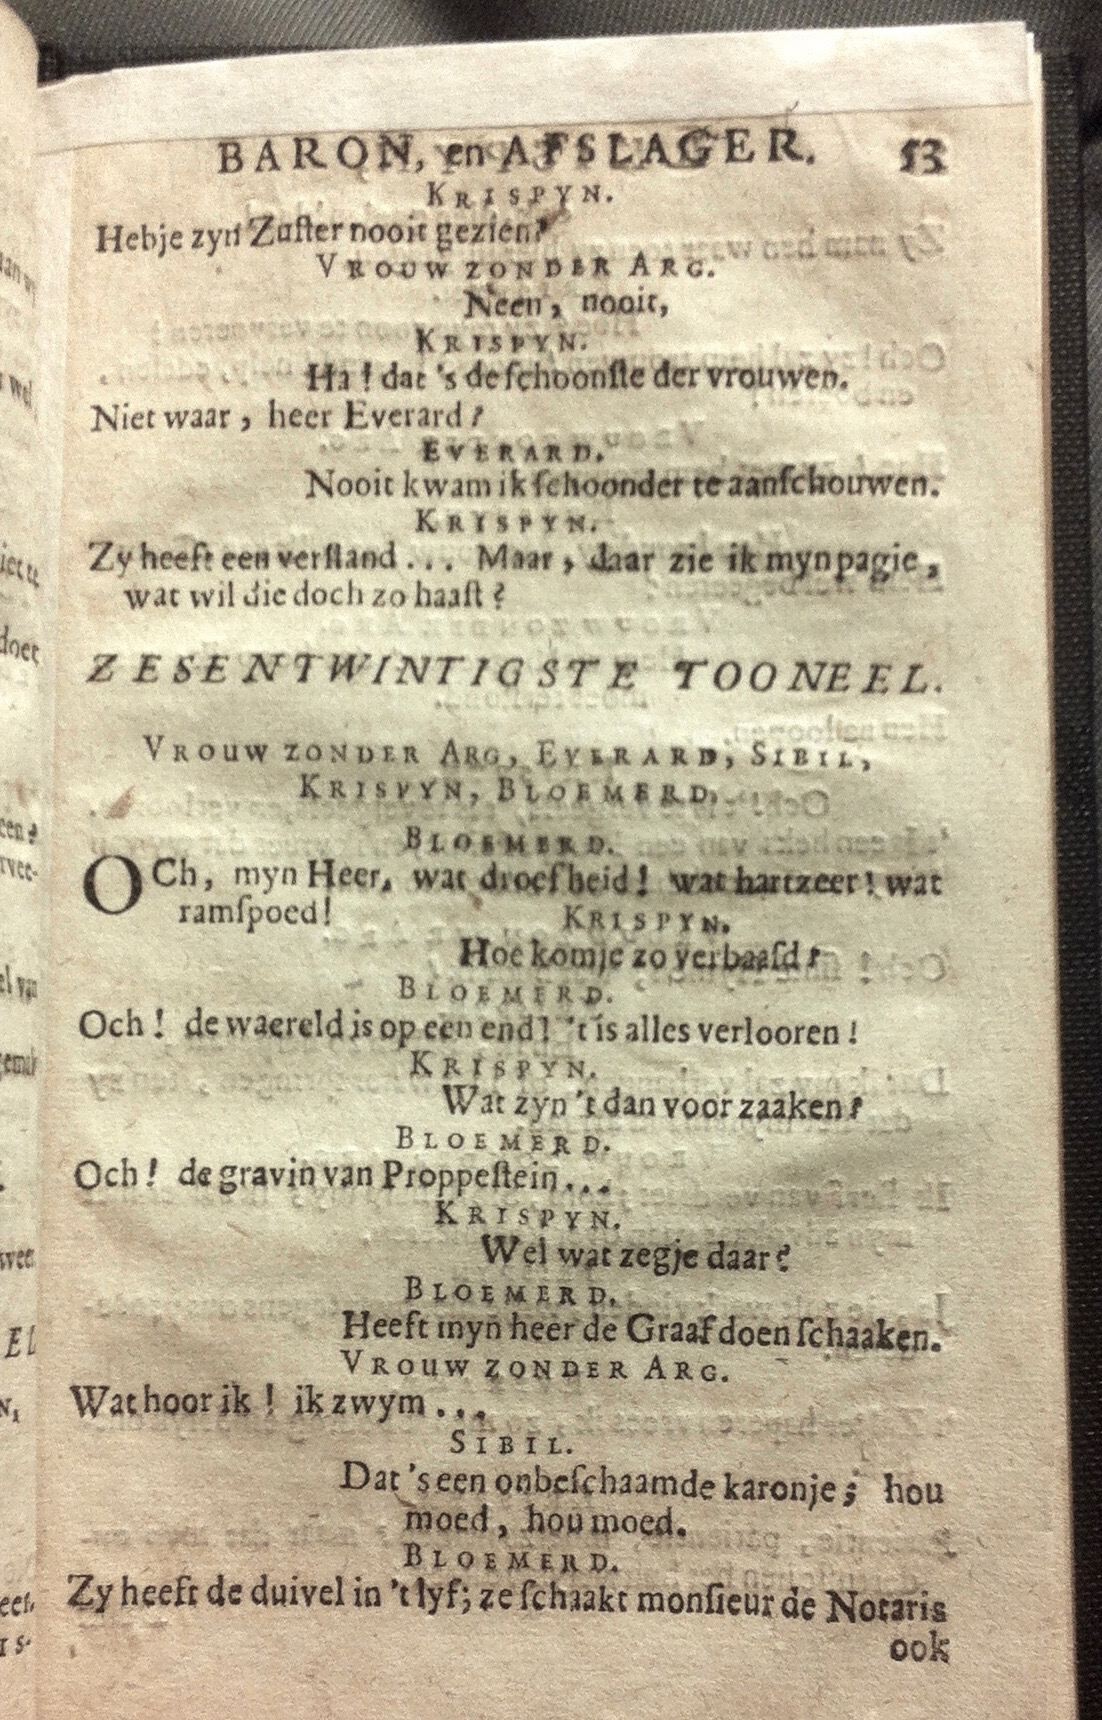 BARON, en AFSLAGER. 53
KRISPYN.
Hebje zyn Zuſter nooit gezien?
VROUW ZONDER ARG.
Neen, nooit,
KRISPYN.
Ha! dat 's de ſchoonſte der vrouwen.
Niet waar, heer Everard?
EVERARD.
Nooit kwam ik ſchoonder te aanſchouwen.
KRISPYN.
Zy heeft een verſtand... Maar, daar zie ik myn pagie,
wat wil die doch zo haaſt?
ZESENTWINTIGSTE TOONEEL.
VROUW ZONDER ARG, EVERARD, SIBIL,
KRISPYN, BLOEMERD.
BLOEMERD.
OCh, myn Heer, wat droefheid! wat hartzeer! wat
ramſpoed! KRISPYN.
Hoe komje zo verbaaſd?
BLOEMERD.
Och! de waereld is op een end! 't is alles verlooren!
KRISPYN.
Wat zyn 't dan voor zaaken?
BLOEMERD.
Och! de gravin van Proppeſtein...
KRISPYN.
Wel wat zegje daar?
BLOEMERD.
Heeft myn heer de Graaf doen ſchaaken.
VROUW ZONDER ARG.
Wat hoor ik! ik zwym...
SIBIL.
Dat 's een onbeſchaamde karonje; hou
moed, hou moed.
BLOEMERD.
Zy heeft de duivel in 't lyf; ze ſchaakt monſieur de Notaris
ook